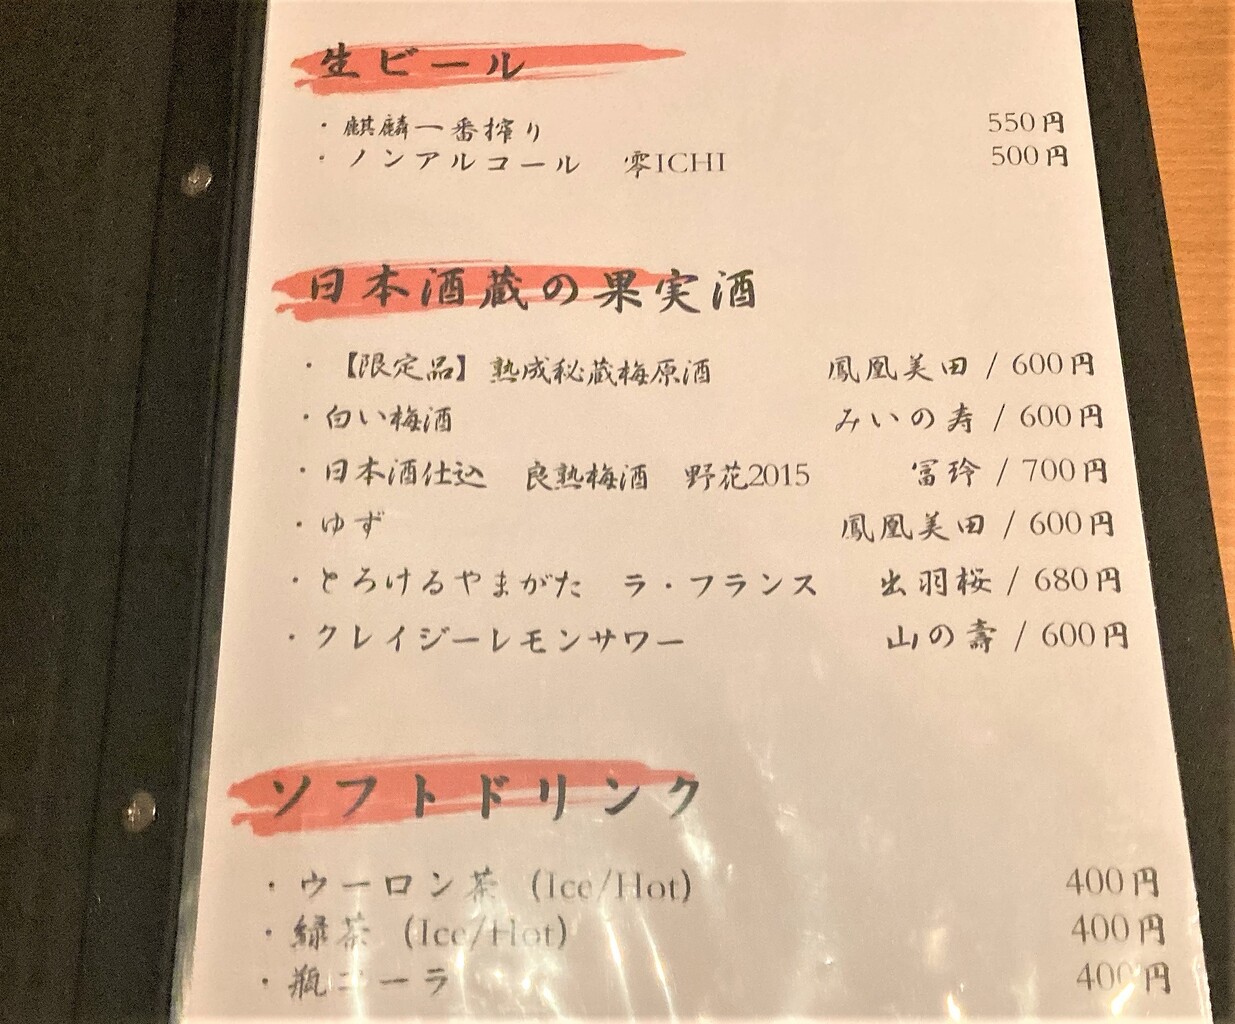 生ビール
・麒麟一番搾り 550円
・ノンアルコール 零ICHI 500円
日本酒蔵の果実酒
・【限定品】熟成秘蔵梅原酒 鳳凰美田 / 600円
・白い梅酒 みいの寿 / 600円
・日本酒仕込 良熟梅酒 野花2015 冨玲 / 700円
・ゆず 鳳凰美田 / 600円
・とろけるやまがた ラ・フランス 出羽桜 / 680円
・クレイジーレモンサワー 山の壽 / 600円
ソフトドリンク
・ウーロン茶 (Ice/Hot) 400円
・緑茶 (Ice/Hot) 400円
・瓶コーラ 400円